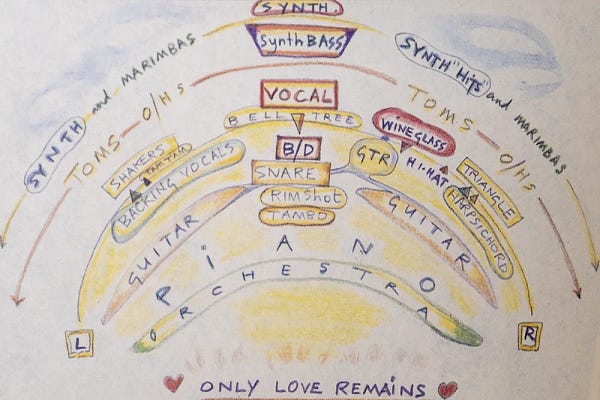 SYNTH.
SynthBASS
SYNTH and MARIMBAS
SYNTH "Hits" and MARIMBAS
TOMS — O/Hs
TOMS — O/Hs
VOCAL
BELL TREE
WINEGLASS
B/D
GTR
HI-HAT
SHAKERS
TAM TAM
SNARE
TRIANGLE
BACKING VOCALS
RIMSHOT
HARPSICHORD
TAMBO
GUITAR
GUITAR
PiANO
ORCHESTRA
L
R
ONLY LOVE REMAINS